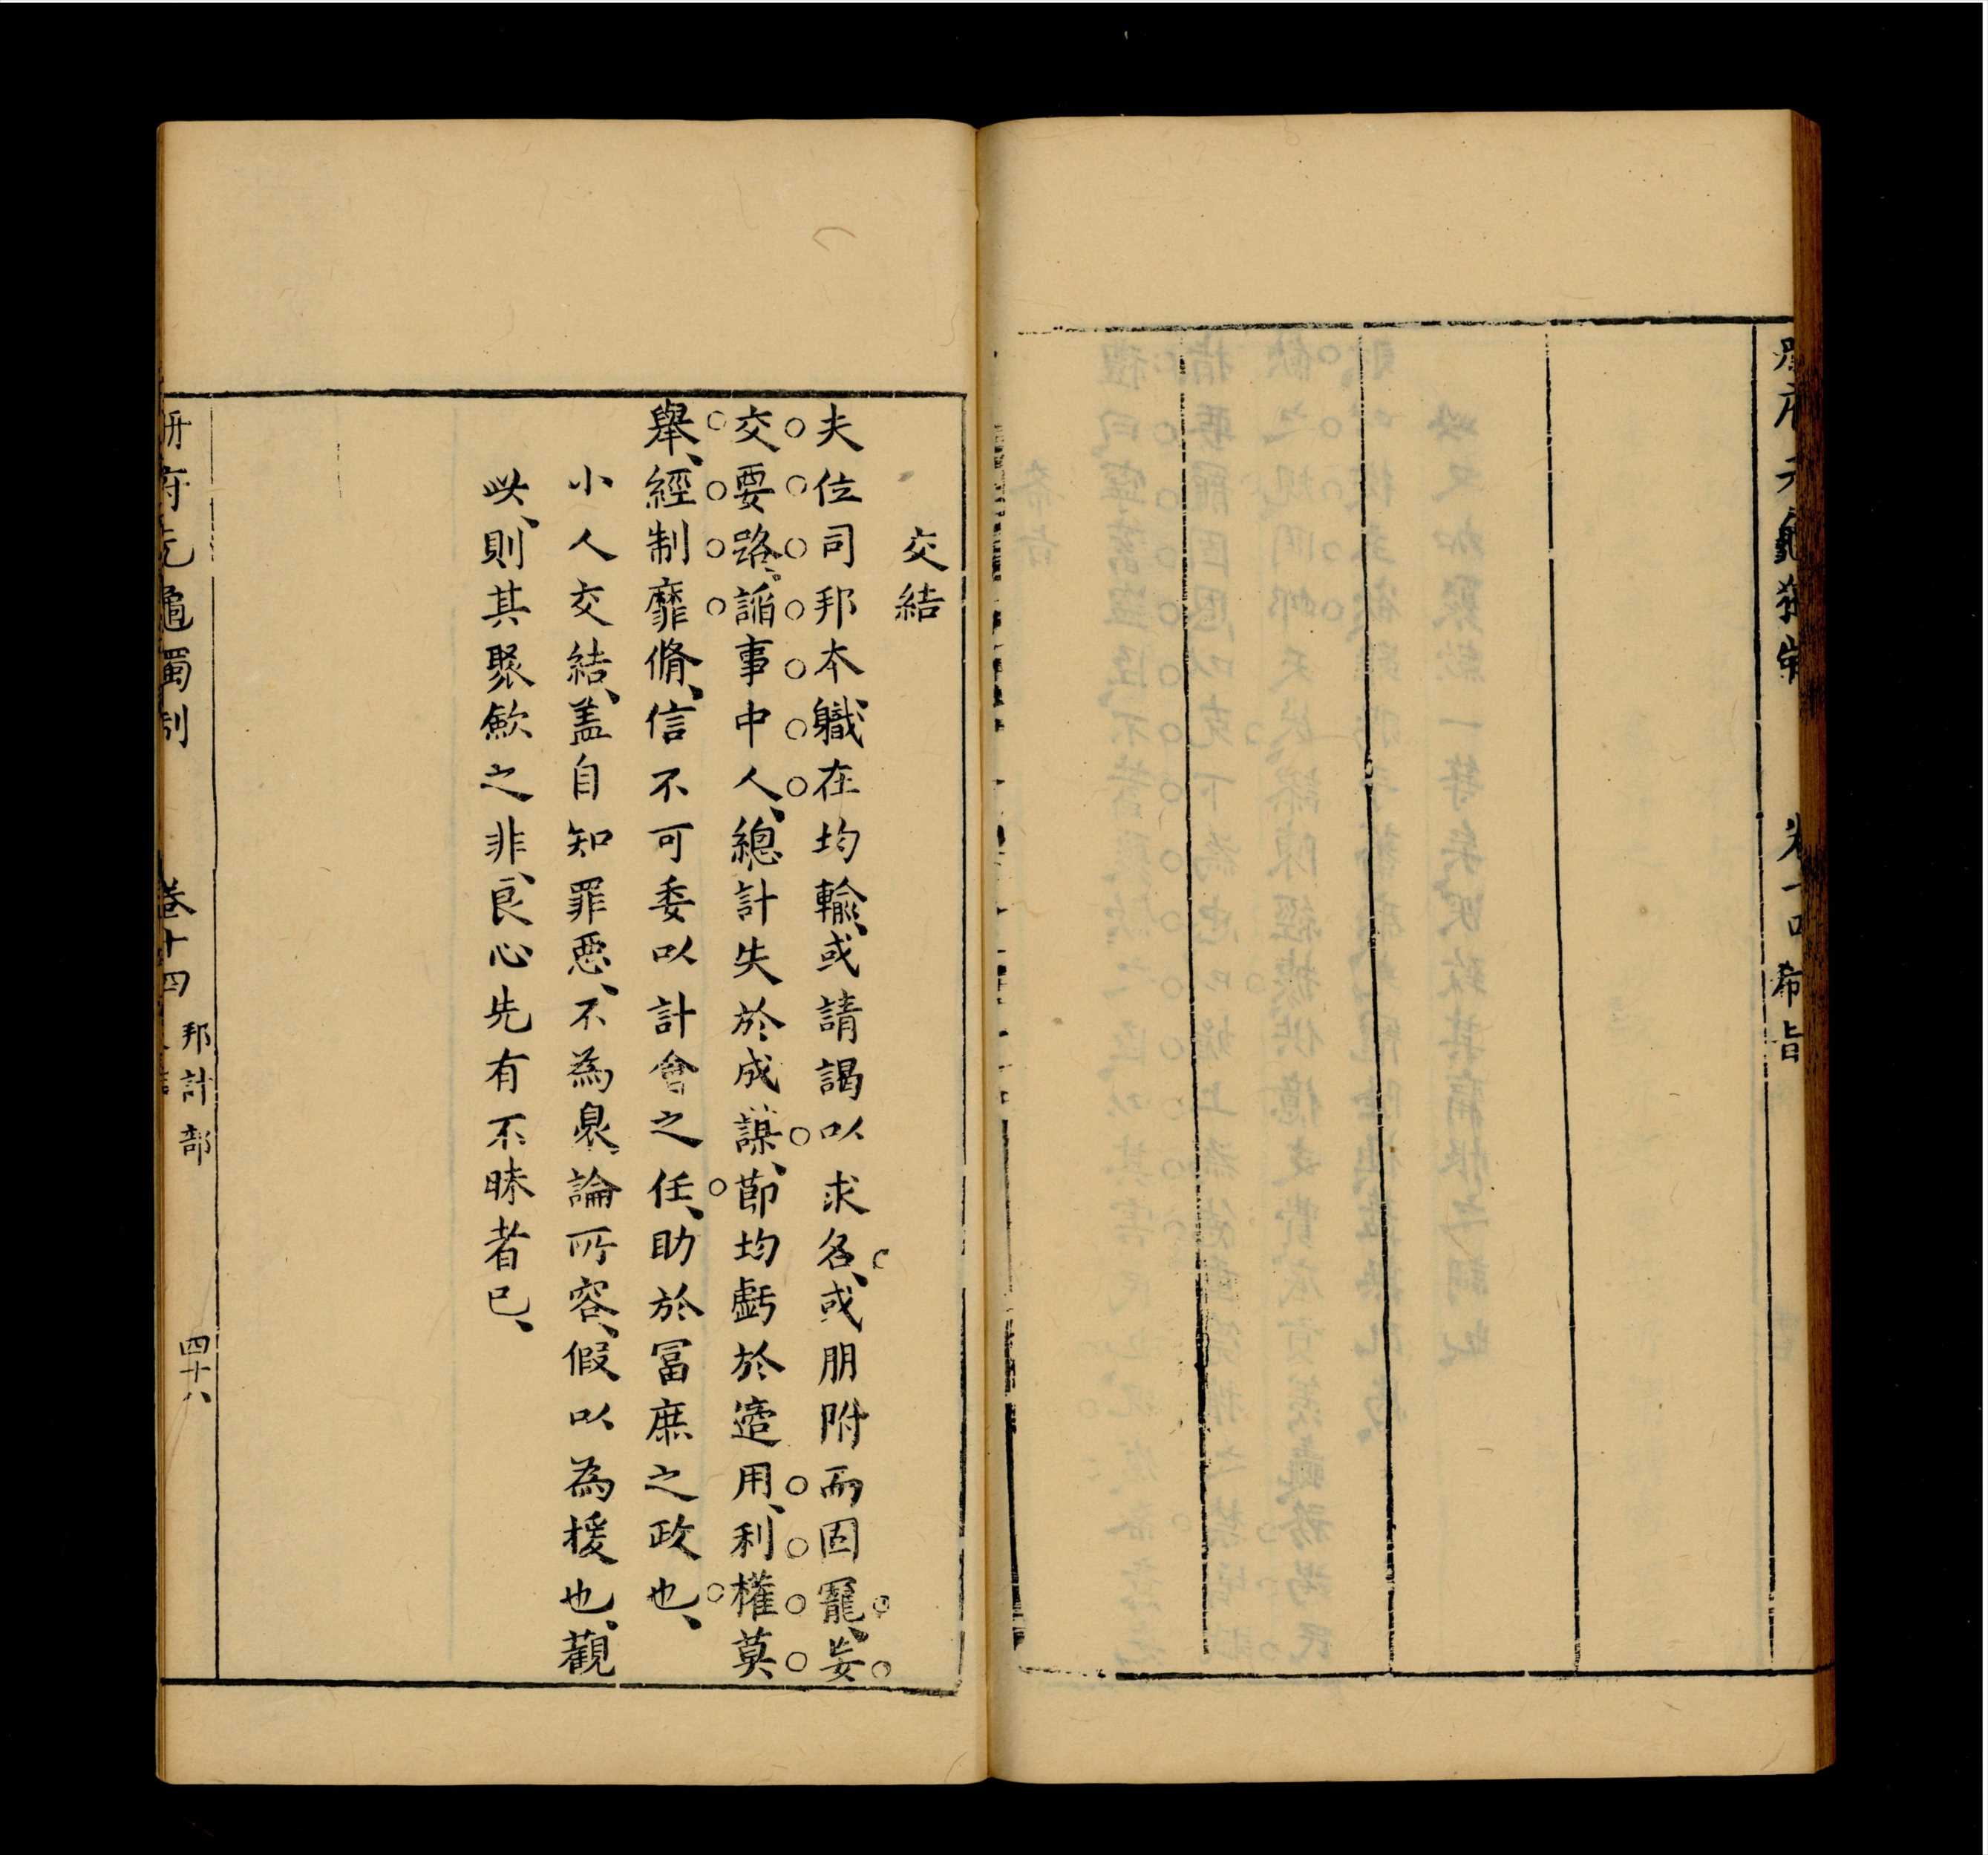 冊府元龜獨制
卷十四
希旨
交結
夫位司邦本職在均輸或請謁以求名或朋附而固寵妄
交要路諂事中人總計失於成謀節均虧於造用利權莫
舉經制靡脩信不可委以計會之任助於冨庶之政也
小人交結盖自知罪惡不為衆論所容假以為援也觀
此則其聚歛之非良心先有不昧者已
冊府元龜獨制
卷十四
邦計部
四十八